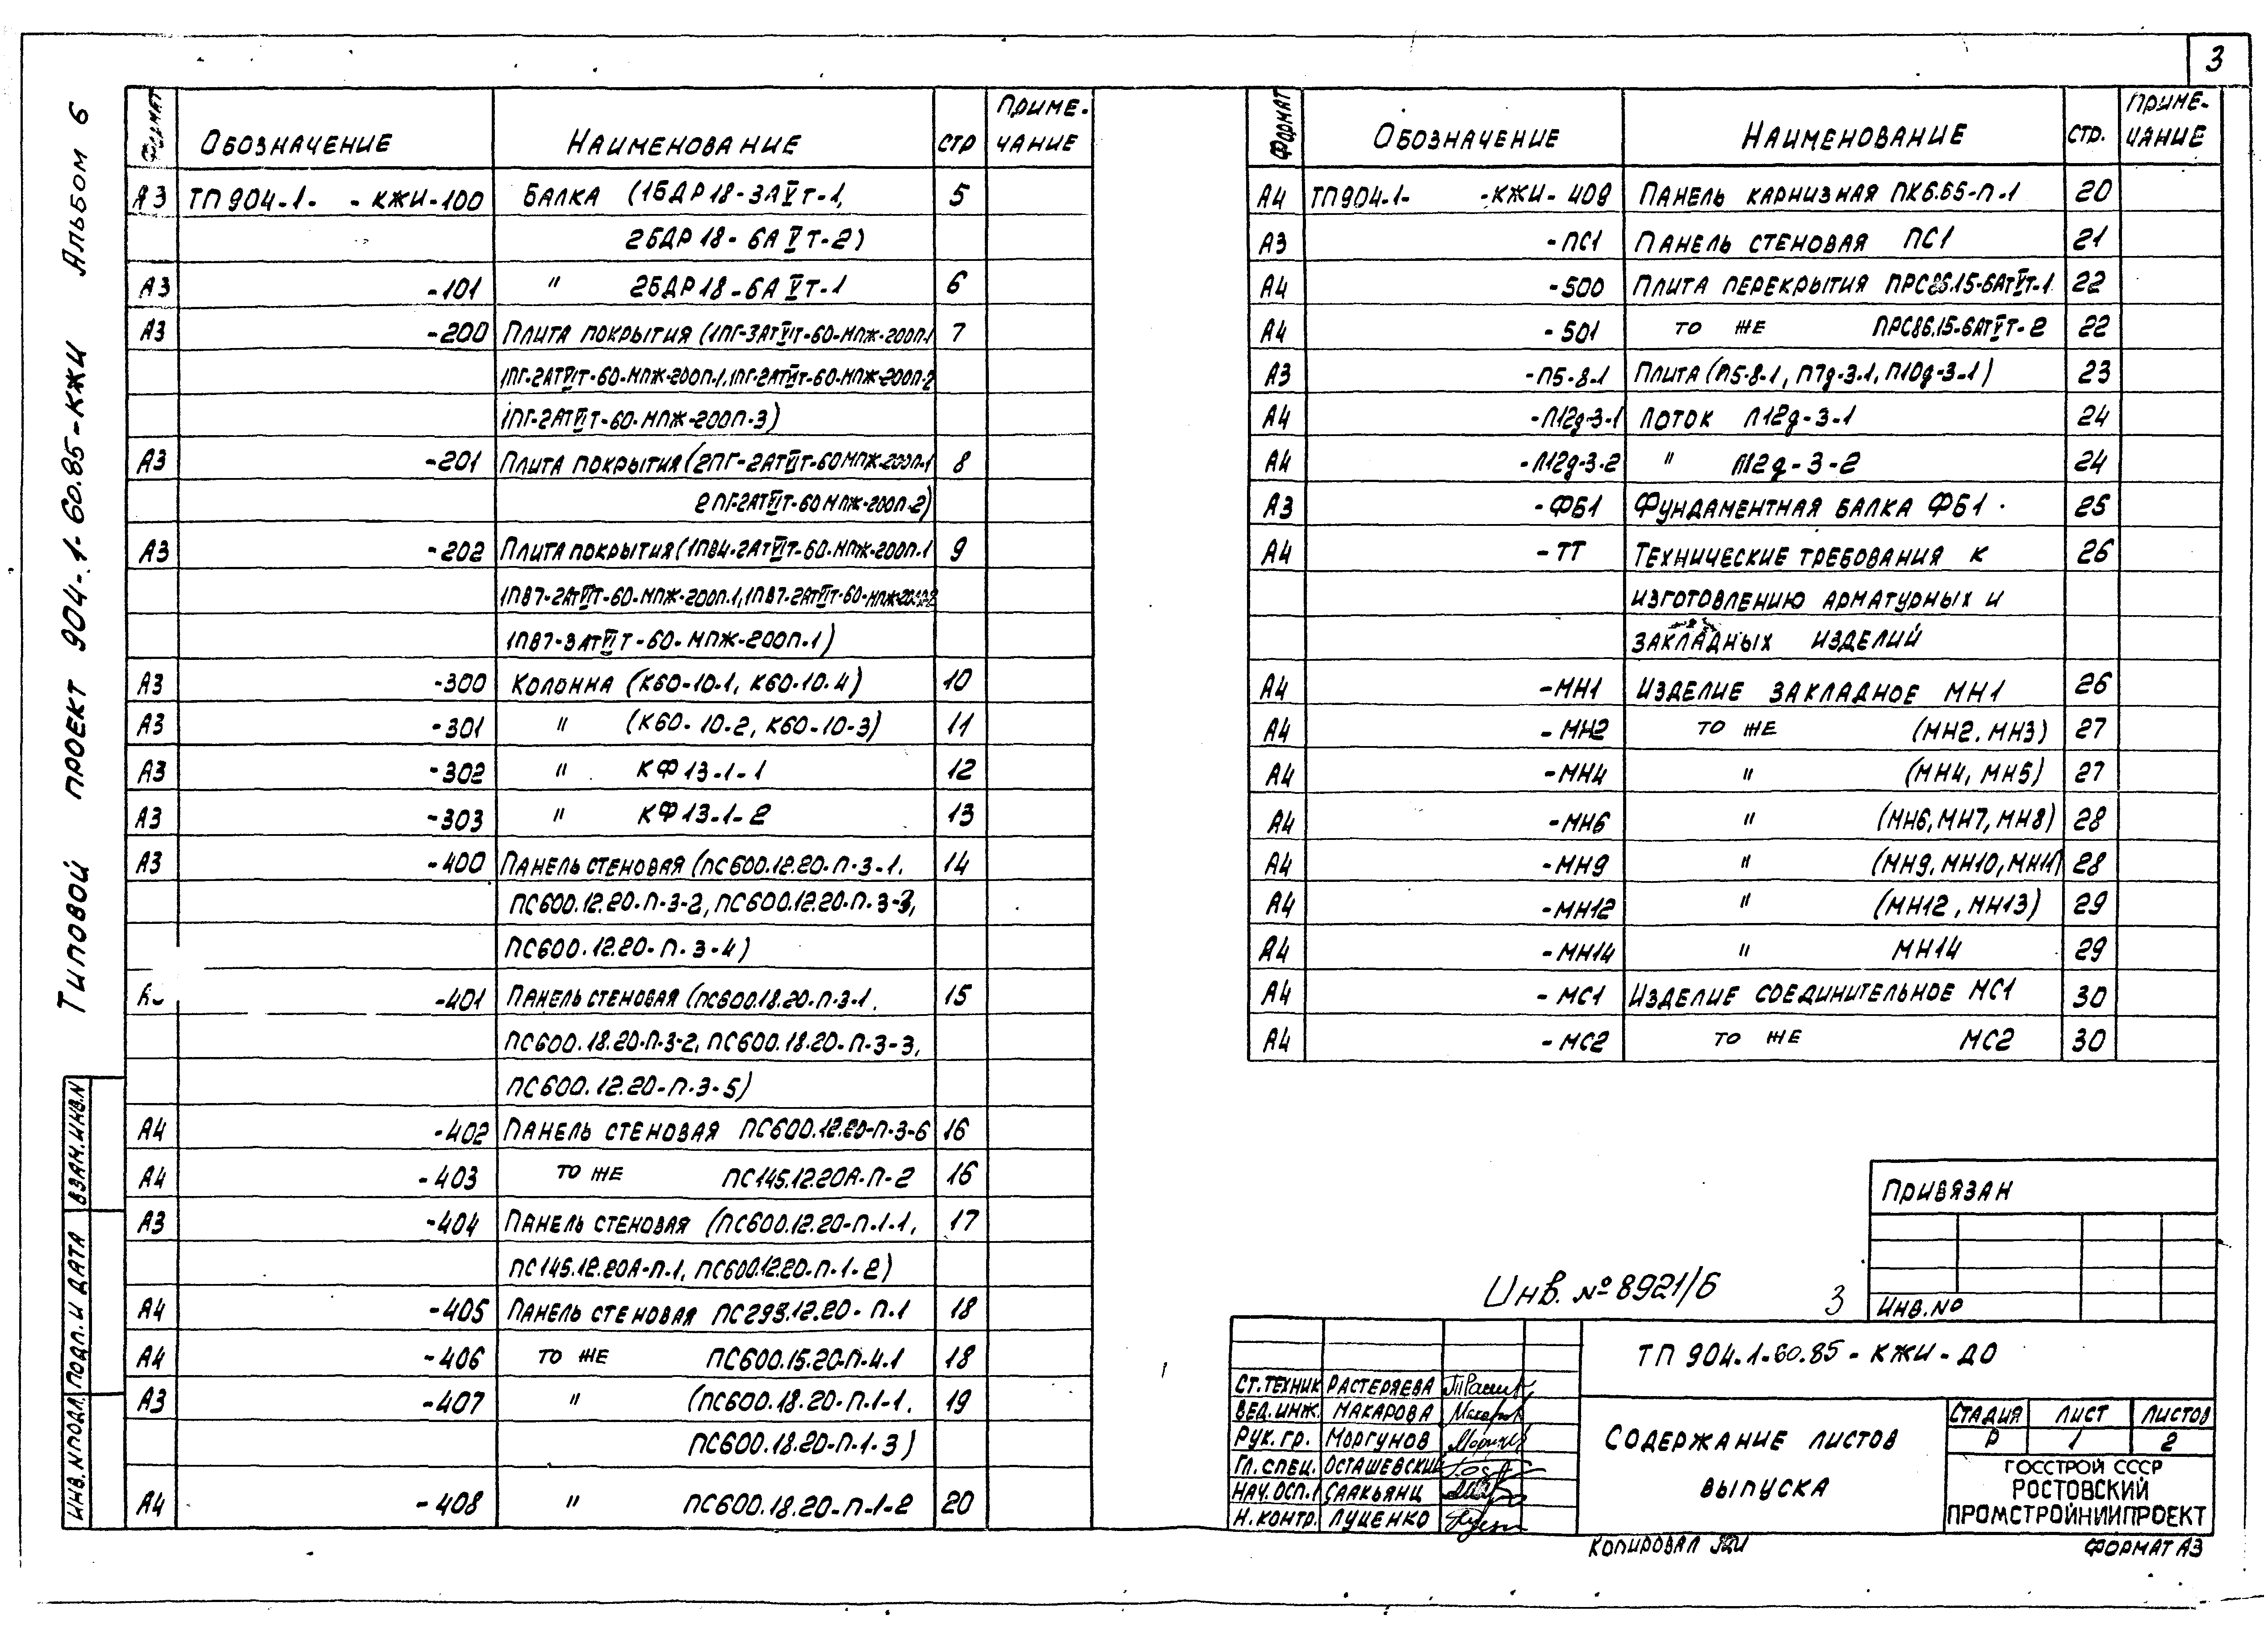 3
Типовой проект 904-1-60.85-КЖИ Альбом 6
Формат Обозначение Наименование Стр Приме-
чание
А3 ТП904-1- -КЖИ-100 Балка (1БДР18-3АVт-1, 5
2БДР18-6АVт-2)
А3 -101 " 2БДР18-6АVт-1 6
А3 -200 Плита покрытия (1ПГ-3АтVIт-60-МПЖ-200П-1 7
1ПГ-2АтVIт-60-МПЖ-200П-1, 1ПГ-2АтVIт-60-МПЖ-200П-2
1ПГ-2АтVIт-60-МПЖ-200П-3)
А3 -201 Плита покрытия (2ПГ-2АтVIт-60МПЖ-200П-1 8
2ПГ-2АтVIт-60МПЖ-200П-2)
А3 -202 Плита покрытия (1П84-2АтVIт-60-МПЖ-200П-1 9
1П87-2АтVIт-60-МПЖ-200П-1, 1П87-2АтVIт-60-МПЖ-200П-2
1П87-3АтVIт-60-МПЖ-200П-1)
А3 -300 Колонна (К60-10-1, К60-10-4) 10
А3 -301 " (К60-10-2, К60-10-3) 11
А3 -302 " КФ13-1-1 12
А3 -303 " КФ13-1-2 13
А3 -400 Панель стеновая (ПС600.12.20-П-3-1, 14
ПС600.12.20-П-3-2, ПС600.12.20-П-3-3,
ПС600.12.20-П-3-4)
-401 Панель стеновая (ПС600.18.20-П-3-1, 15
ПС600.18.20-П-3-2, ПС600.18.20-П-3-3,
ПС600.12.20-П-3-5)
А4 -402 Панель стеновая ПС600.12.20-П-3-6 16
А4 -403 то же ПС145.12.20А-П-2 16
А3 -404 Панель стеновая (ПС600.12.20-П-1-1, 17
ПС145.12.20А-П-1, ПС600.12.20-П-1-2)
А4 -405 Панель стеновая ПС295.12.20-П-1 18
А4 -406 то же ПС600.15.20-П-4-1 18
А3 -407 " (ПС600.18.20-П-1-1, 19
ПС600.18.20-П-1-3)
А4 -408 " ПС600.18.20-П-1-2 20
Формат Обозначение Наименование Стр. Приме-
чание
А4 ТП904-1- -КЖИ-409 Панель карнизная ПК6.65-П-1 20
А3 -ПС1 Панель стеновая ПС1 21
А4 -500 Плита перекрытия ПРС86.15-6АтVт-1 22
А4 -501 то же ПРС86.15-6АтVт-2 22
А3 -П5-8-1 Плита (П5-8-1, П7д-3-1, П10д-3-1) 23
А4 -Л12д-3-1 Лоток Л12д-3-1 24
А4 -Л12д-3-2 " Л12д-3-2 24
А3 -ФБ1 Фундаментная балка ФБ1 25
А4 -ТТ Технические требования к 26
изготовлению арматурных и
закладных изделий
А4 -МН1 Изделие закладное МН1 26
А4 -МН2 то же (МН2, МН3) 27
А4 -МН4 " (МН4, МН5) 27
А4 -МН6 " (МН6, МН7, МН8) 28
А4 -МН9 " (МН9, МН10, МН11) 28
А4 -МН12 " (МН12, МН13) 29
А4 -МН14 " МН14 29
А4 -МС1 Изделие соединительное МС1 30
А4 -МС2 то же МС2 30
Привязан
Инв. №
Инв. № 8921/6 3
ТП 904-1-60.85-КЖИ-ДО
Ст. техник Растеряева
Вед. инж. Макарова
Рук. гр. Моргунов
Гл. спец. Осташевский
Нач. ОСП-1 Саакьянц
Н. контр. Луценко
Содержание листов
выпуска
Стадия Лист Листов
Р 1 2
ГОССТРОЙ СССР
РОСТОВСКИЙ
ПРОМСТРОЙНИИПРОЕКТ
Копировал
Формат А3
Взам. инв. N
Подп. и дата
Инв. N подл.